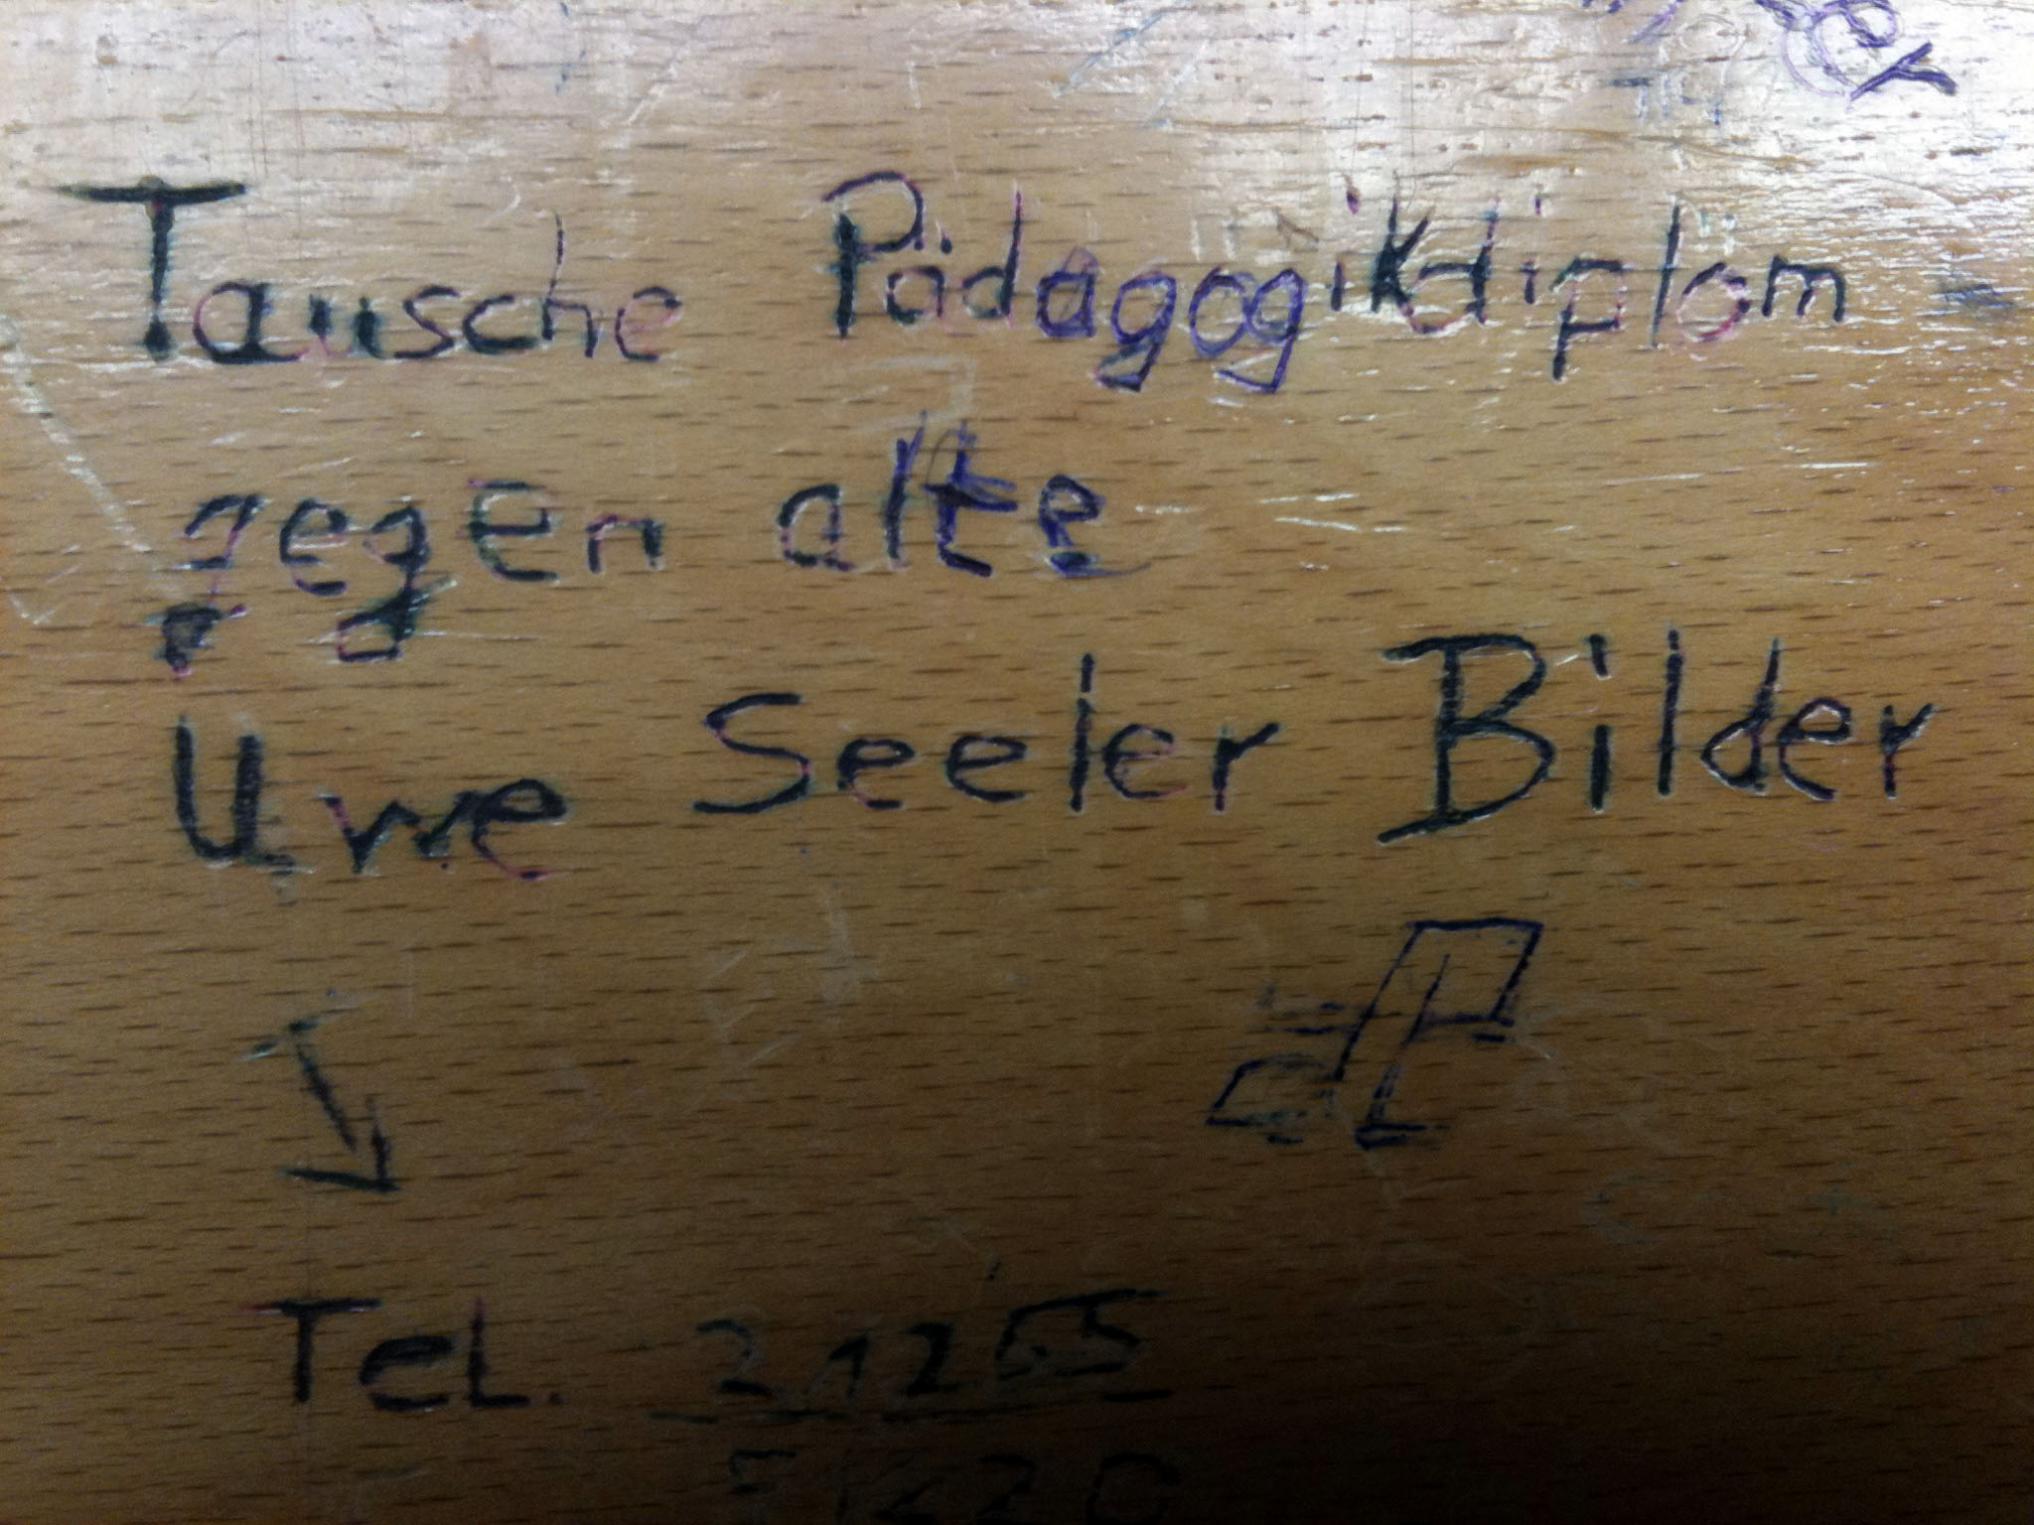 Tausche Pädagogikdiplom
gegen alte
Uwe Seeler Bilder
Tel. 21255